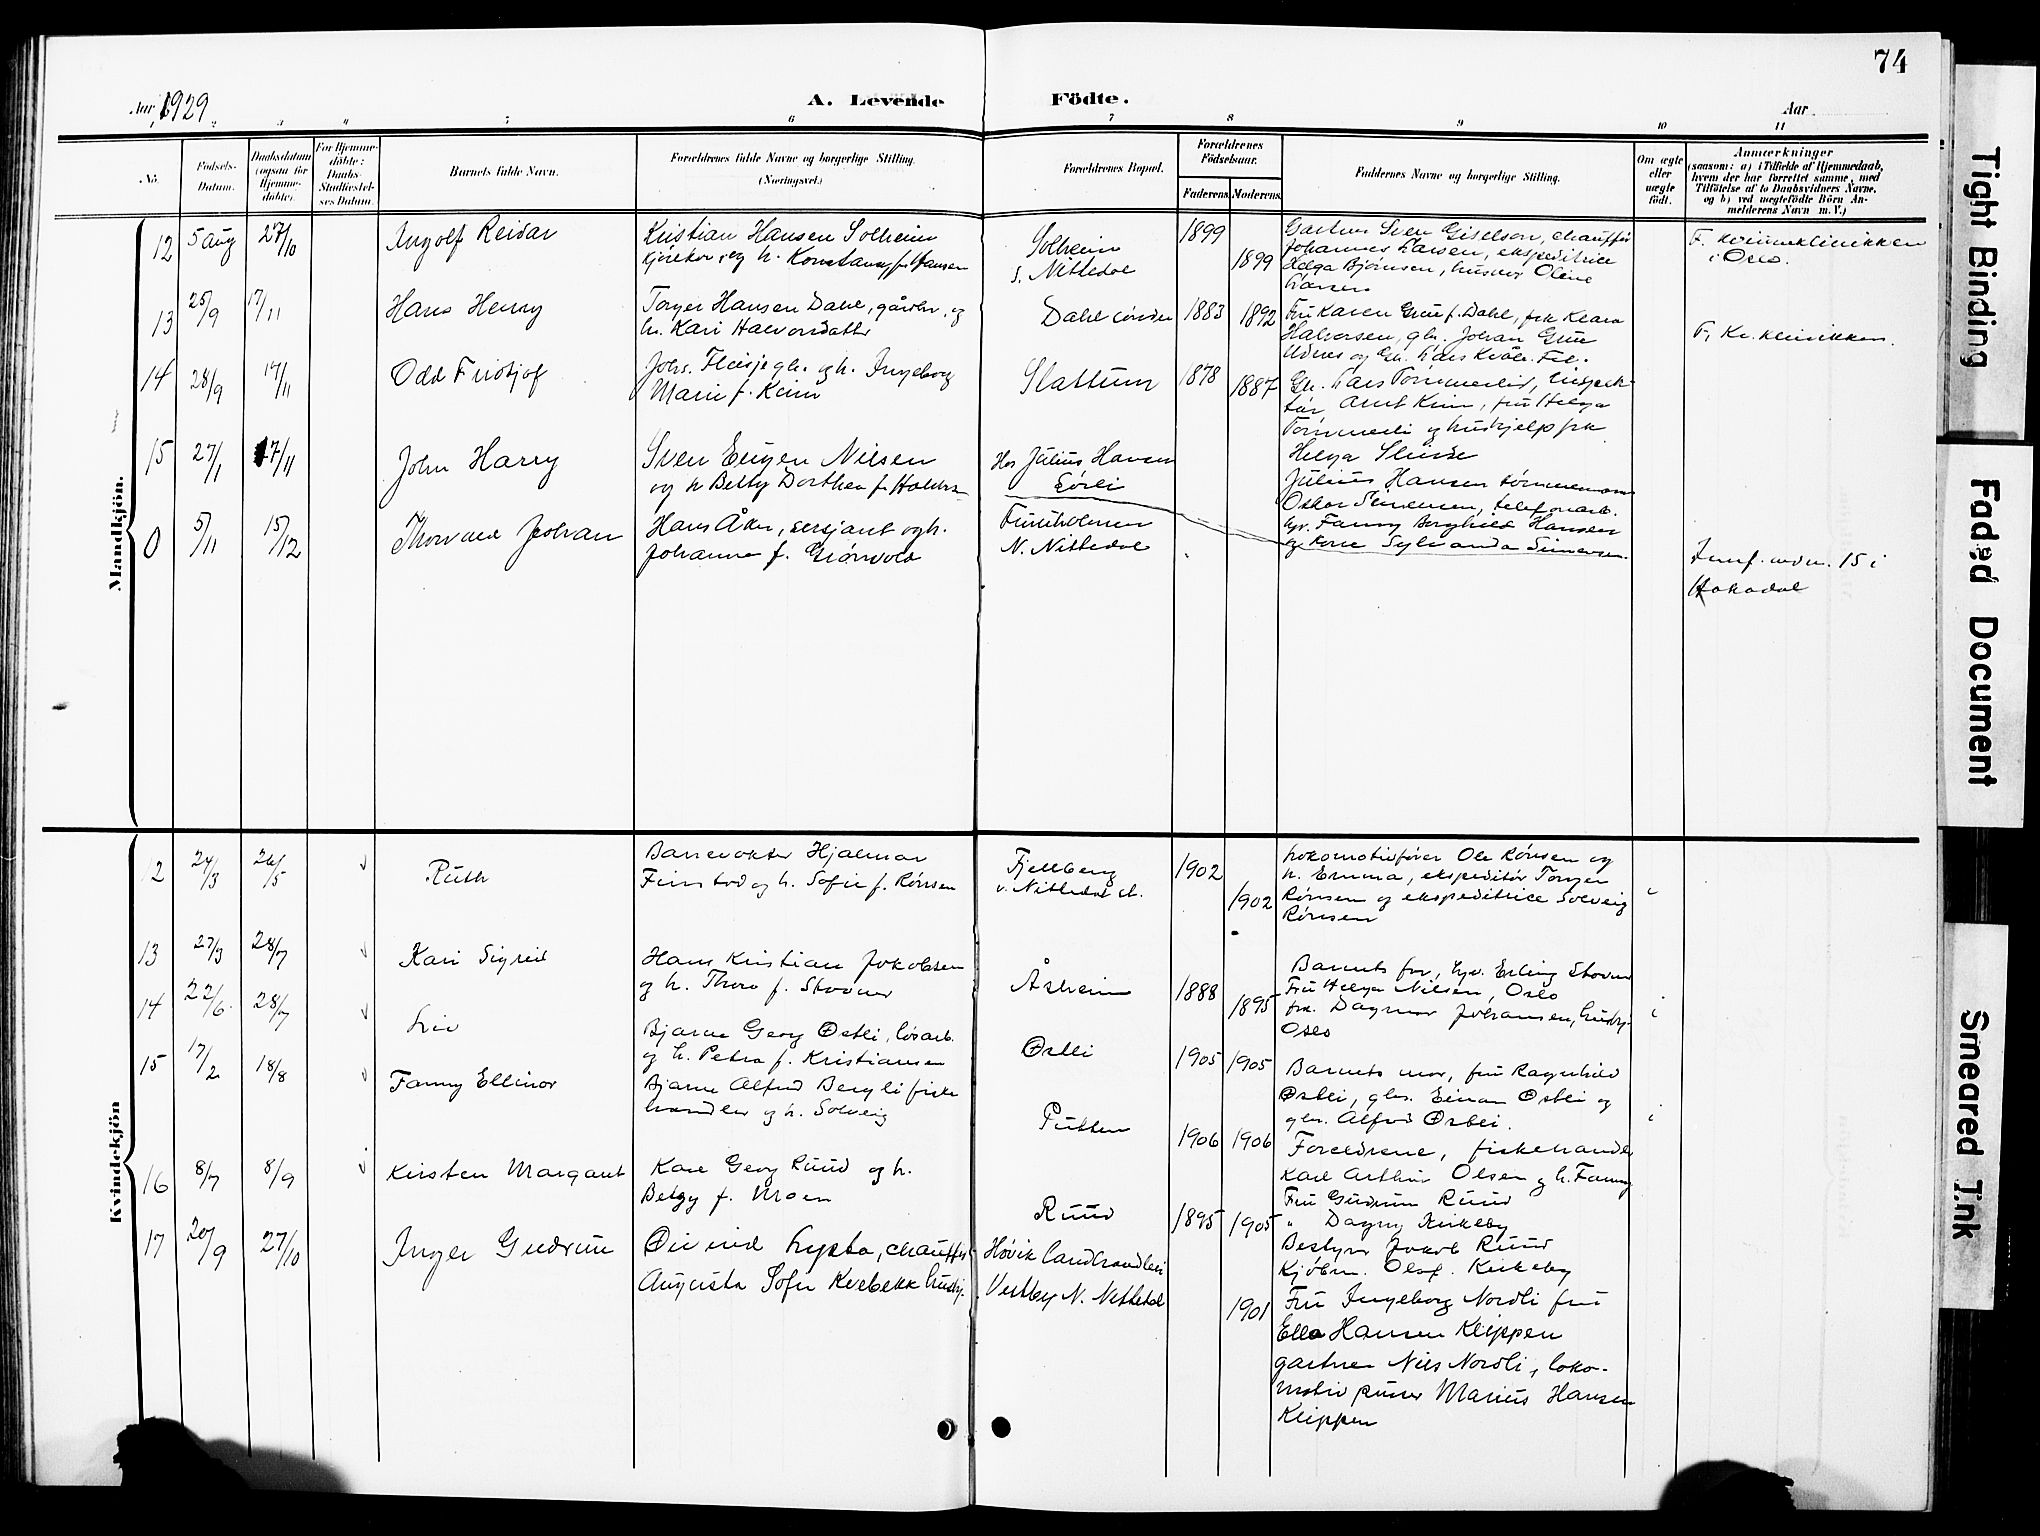 74
Aar 1929
A. Levende Födte.
Aar
1 2 3 4 5 6 7 8 9 10 11
No.
Födsels-Datum.
Daabsdatum (ogsaa for Hjemmedöbte).
For Hjemmedöbte: Daabs-Stadfæstelses Datum.
Barnets fulde Navn.
Forældrenes fulde Navne og borgerlige Stilling.
(Næringsvei.)
Forældrenes Bopæl.
Forældrenes Födselsaar.
Faderens. Moderens.
Faddernes Navne og borgerlige Stilling.
Om ægte eller uægte födt.
Anmærkninger
(saasom: a) i Tilfælde af Hjemmedaab,
hvem der har forrettet samme, med
Tilföielse af to Daabsvidners Navne,
og b) ved uægtefödte Börn An-
melderens Navn m. V.)
Mandkjön.
12 5 aug 27/10 Ingolf Reidar
Kristian Hansen Solheim
Solheim
s. Nittedal
1899 1899
Gartner Sven Giselson, chauffør
Johannes Larsen, ekspeditrice
Helga Bjørnsen, husmor Oline
Larsen
F. kvinneklinikken
i Oslo.
13 25/9 17/11 Hans Henry
Torger Hansen Dahl, gårbr. og
h. Kari Halvorsdatter
Dahl søndre
1883 1892
Fru Karen Gruu f. Dahl, frk Klara
Halvorsen, gbr. Johan Gruu
F. Kv. klinikken.
14 28/9 17/11 Odd Fridtjof
Johs. Fleisje gbr. og h. Ingeborg
Marie f. Keim
Slattum
1878 1887
Gbr. Lars Tømmerlid, inspek-
tør Arnt Keim, fru Helga
Tømmerli og hushjelp frk
Helga
15 27/1 17/11 John Harry
Sven Eugen Nilsen
og h Betty Dorthea f.
Hos Julius Hansen
Sørli
Julius Hansen tømmermann
Oskar Simensen, telefonarb.
Fanny Borghild Hansen
og Sylvanda Simensen.
0 5/11 15/12 Thorvald Johan
Hans Åker, sersjant og h.
Johanne f. Grønvold
Furuholmen
N. Nittedal
Innf. under nr. 15 i
Hakadal
Kvindekjön
12 24/3 26/5 Ruth
Banevokter Hjalmar
Finstad og h. Sofie f. Rønsen
Fjellberg
v. Nittedal st.
1902 1902
Lokomotivfører Ole Rønsen og
h. Emma, ekspeditør Torger
Rønsen og ekspeditrice Solveig
Rønsen
13 27/3 28/7 Kari Sigrid
Hans Kristian Jakobsen
og h. Thora f. Stovner
Åsheim
1888 1895
Barnets far, Erling Stovner
Fru Helga Nilsen, Oslo
frk. Dagmar Johansen,
Oslo
i
14 22/6 28/7 Liv
Bjarne Georg Østli, løsarb.
og h. Petra f. Kristiansen
Østli
1905 1905
Barnets mor, fru Ragnhild
Østli, gbr. Einar Østli og
gbr. Alfred Østli.
i
15 17/2 18/8 Fanny Ellinor
Bjarne Alfred Bergli fiske
handler og h. Solveig
Putten
1906 1906
Foreldrene, fiskehandler
Karl Arthur Olsen og h. Fanny
16 8/7 8/9 Kirsten Margaret
Kare Georg Ruud og h.
f. Moen
Ruud
1895 1905
Fru Gudrun Ruud
" Dagny Kirkeby
Bestyrer Jakob Ruud
Kjøbm. Olaf Kirkeby
17 20/9 27/10 Inger Gudrun
Øivind Lysta, chauffør
Augusta Sofie Kvebekk
Høvik landhandleri
Vestby N. Nittedal
1901
Fru Ingeborg Nordli fru
Ella Hansen Klippen
gartner Nils Nordli, loko-
motiv pusser Marius Hansen
Klippen
Tight Binding
Faded Document
Smeared Ink